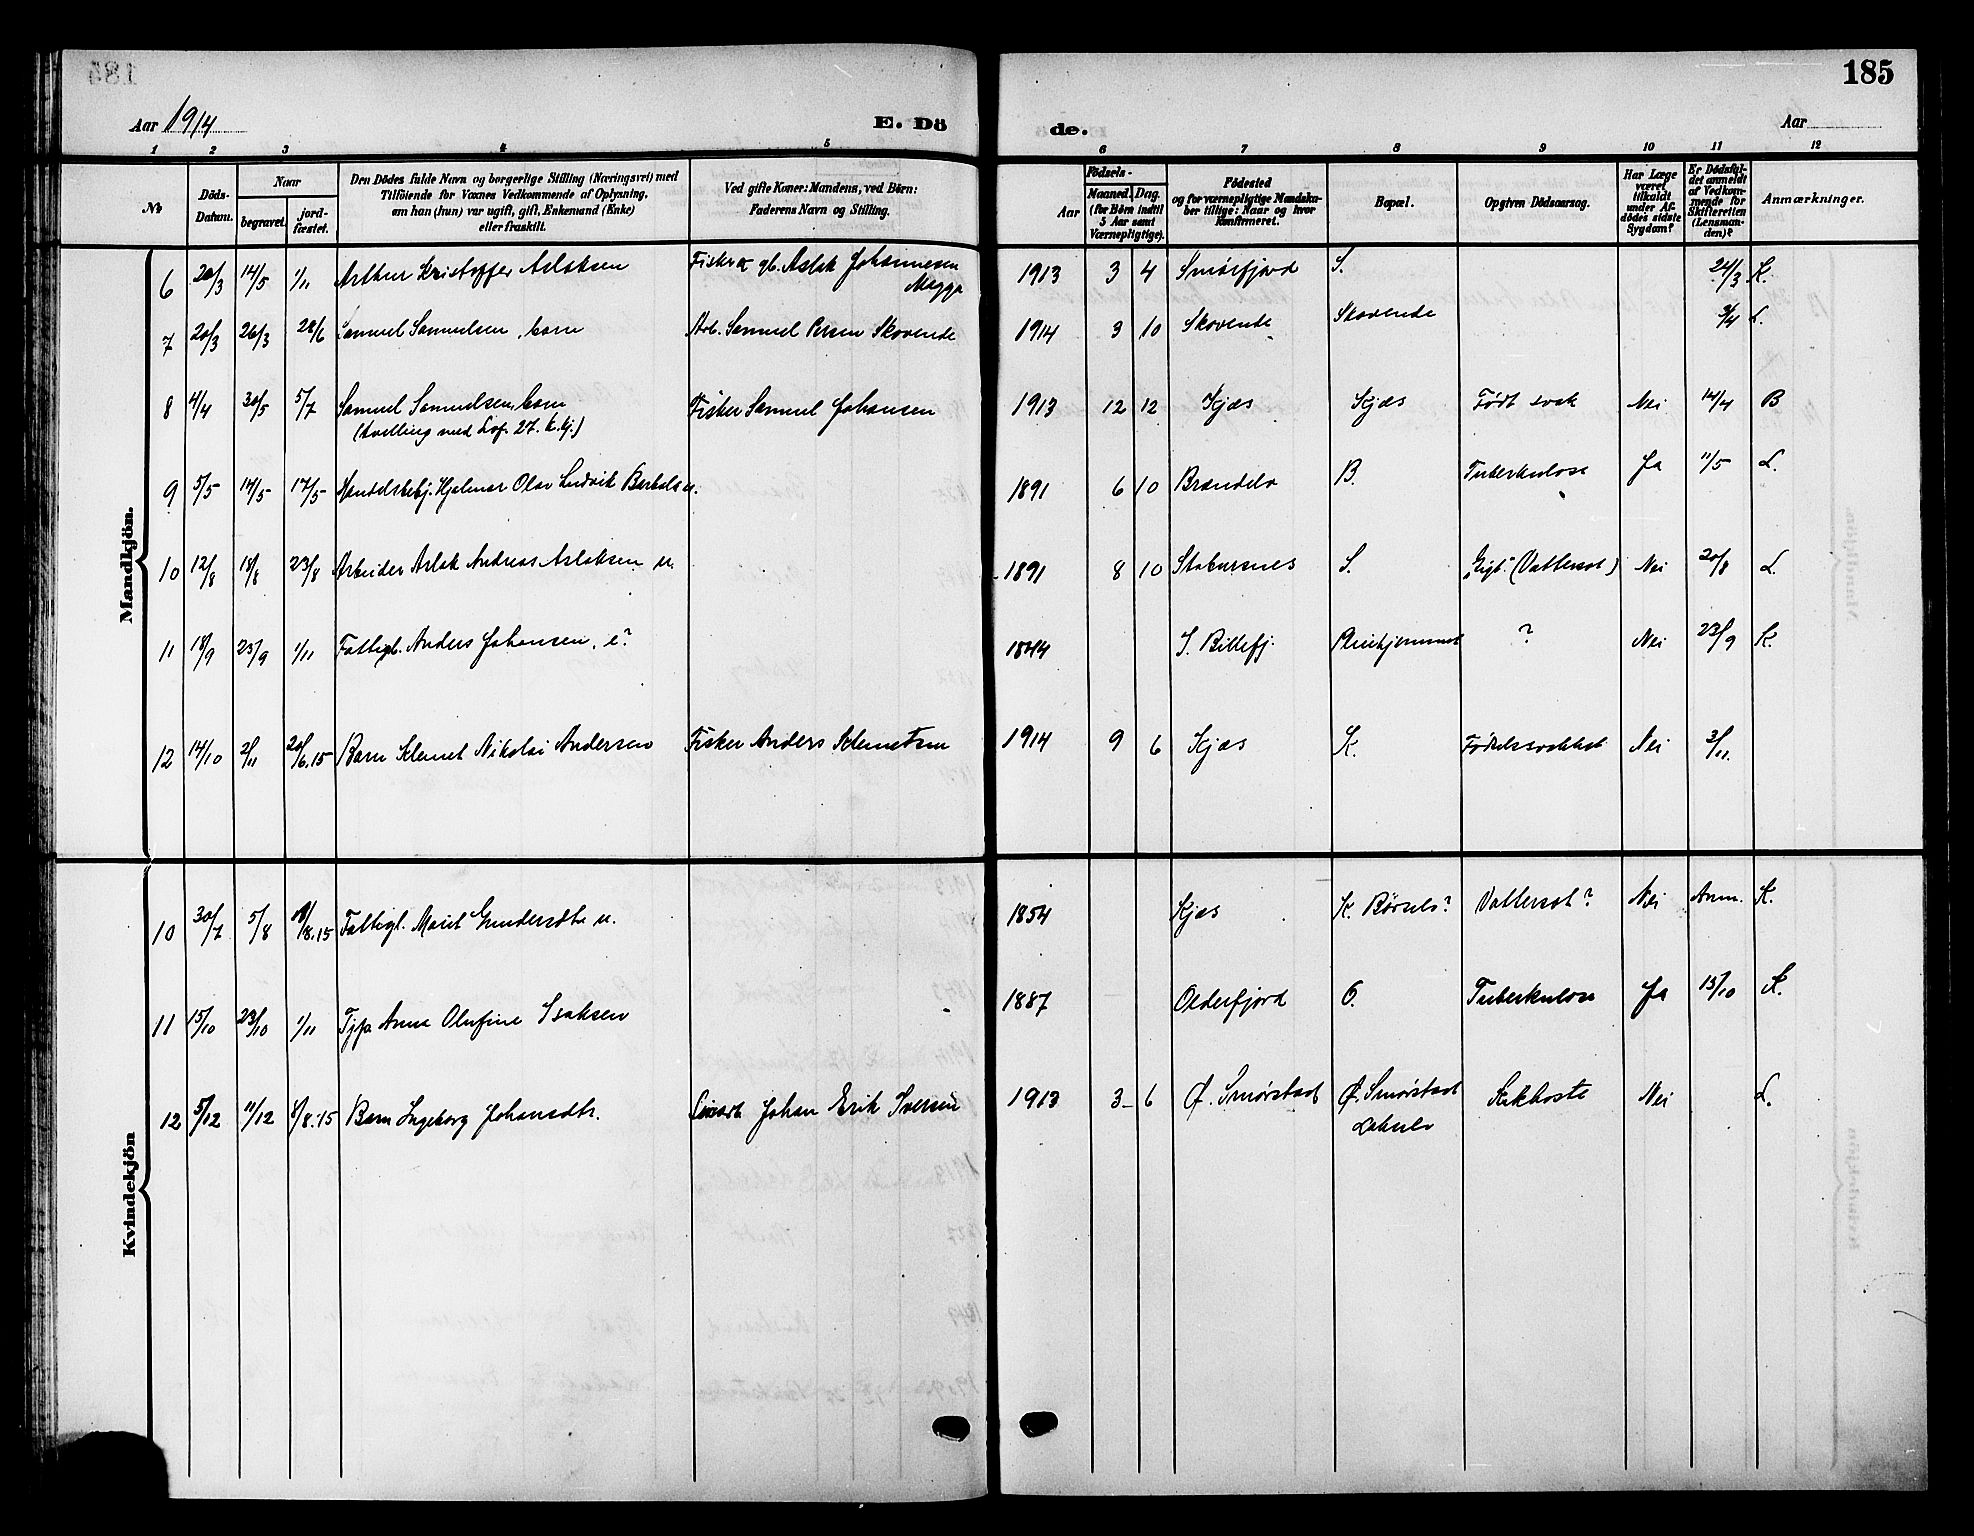 184
185
Aar 1914
E. Dö
de.
Aar
1 2 3 4 5 6 7 8 9 10 11 12
Nº
Döds-
Datum.
Naar
begravet.
jord-
fæstet.
Den Dödes fulde Navn og borgerlige Stilling (Næringsvei) med
Tilföiende for Voxnes Vedkommende af Oplysning,
om han (hun) var ugift, gift, Enkemand (Enke)
eller fraskilt.
Ved gifte Koner: Mandens, ved Börn:
Faderens Navn og Stilling.
Aar
Födsels-
Maaned. Dag.
(for Börn indtil
5 Aar samt
Værnepligtige).
Födested
og for værnepligtige Mandska-
ber tillige: Naar og hvor
konfirmeret.
Bopæl.
Opgiven Dödsaarsag.
Har Læge
været
tilkaldt
under Af-
dödes sidste
Sygdom?
Er Dödsfal-
det anmeldt
af Vedkom-
mende for
Skifteretten
(Lensman-
den)?
Anmærkninger.
Mandkjön.
6 20/3 14/5 1/11 Arthur Kristoffer Aslaksen Fisker gb. Aslak Johannesen 1913 3 4 Smörfjord S. 24/3 K.
Magga
7 20/3 26/3 28/6 Samuel Samuelsen, barn Arb. Samuel Persen Skovende 1914 3 10 Skovende Skovende 3/4 L.
8 4/4 30/5 5/7 Samuel Samuelsen, barn Fisker Samuel Johansen 1913 12 12 Kjæs Kjæs Født svak Nei 14/4 B
(tvilling med 27. k.kj.)
9 5/5 14/5 17/5 Handelsbetj. Hjalmar Olav Ludvik 1891 6 10 Brændelv B. Tuberkulose Ja 11/5 L.
10 12/8 18/8 23/8 Arbeider Aslak Andreas Aslaksen u. 1891 8 10 Stabursnes S. "Gigt" (Vattersot) Nei 20/8 L.
11 18/9 23/9 1/11 Fattigl. Anders Johansen, e? 1844 S. Billefj. Pleiehjemmet ? Nei 23/9 K.
12 14/10 2/11 20/6.15 Barn Klemet Nikolai Andersen Fisker Anders Klemetsen 1914 9 6 Kjæs K. Fødselssvakhet Nei 3/11.
Kvindekjön
10 30/7 5/8 /8.15 Fattigl. Marit Gundersdtr u. 1854 Kjæs K. Børsel? Vattersot? Nei Anm. K.
11 15/10 23/10 1/11 Anna Olufine Isaksen 1887 Olderfjord O. Tuberkulose Ja 15/10 K.
12 5/12 11/12 8/8.15 Barn Ingeborg Johansdtr. Johan Erik Iversen 1913 3 6 Ø. Smørstad Ø. Smørstad Kikhoste Nei L.
Lakselv